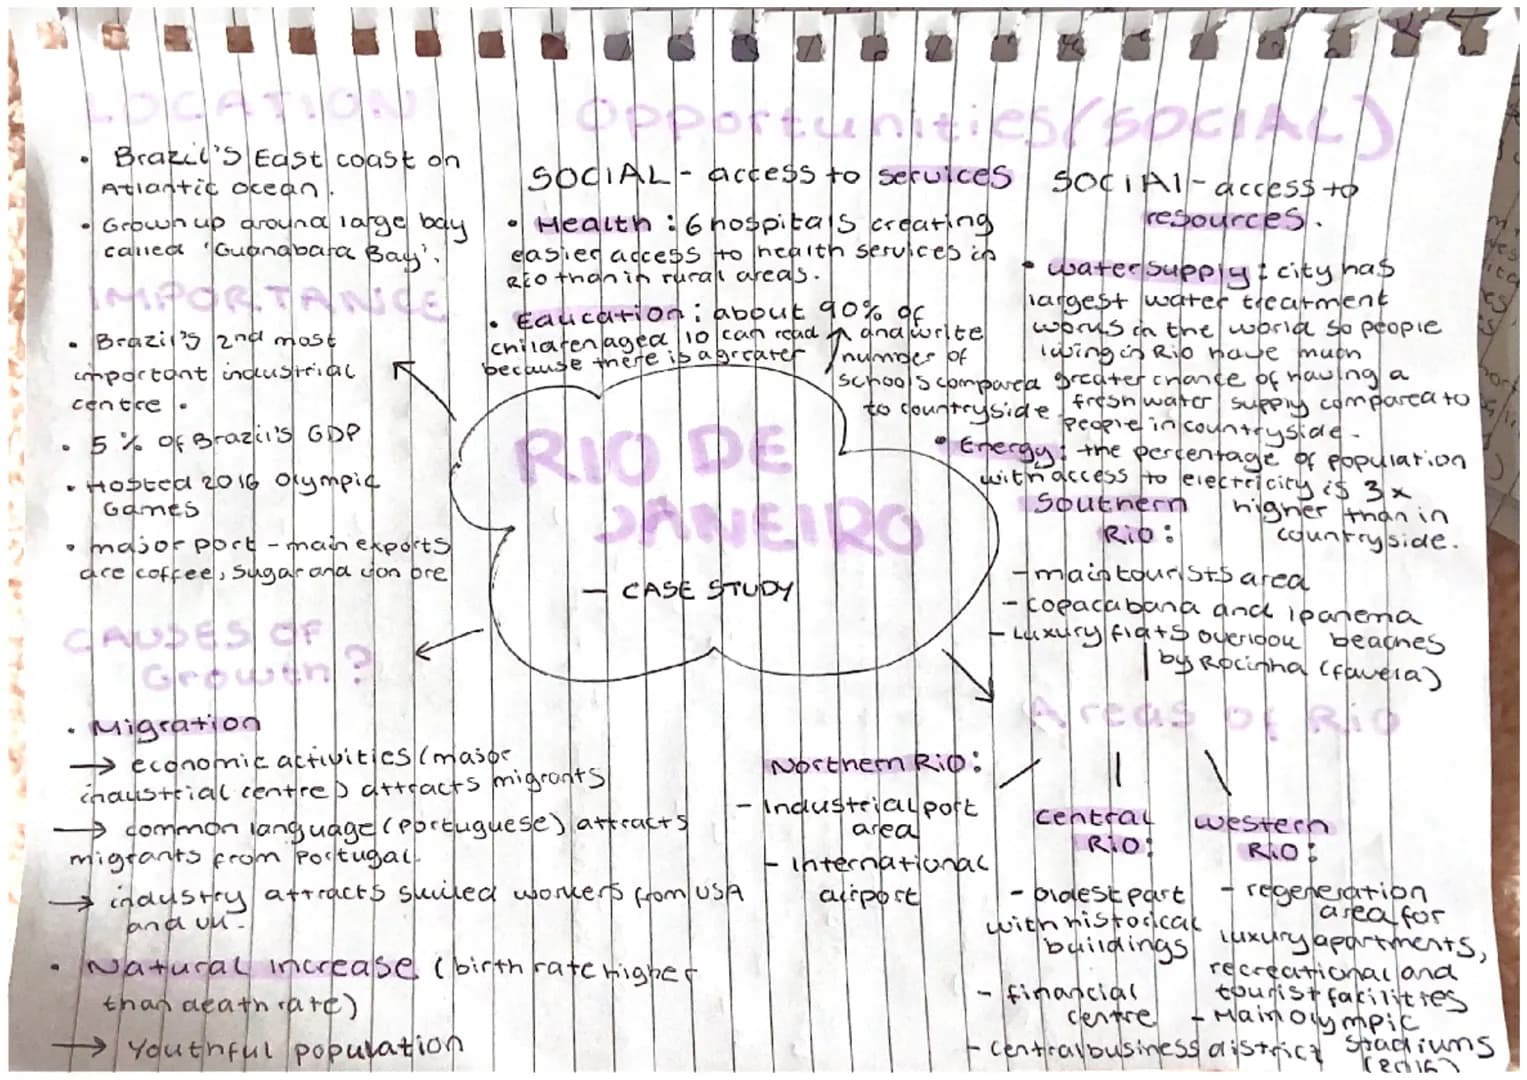 LOCATION
• Brazil's East coast on
Atlantic ocean.
• Grown up around large bay
called 'Guanabara Bay'.
IMPORTANCE
• Brazil's 2nd most
important industrial
centre.
• 5% of Brazil's GDP
• Hosted 2016 Olympic
Games
• major port - main exports
are coffee, sugar and iron ore
CAUSES OF
Growth?
• Migration
→ economic activities (major
industrial centre) attracts migrants
→ common language (Portuguese) attracts
migrants from Portugal.
→ industry attracts skilled workers from USA
and UK.
• Natural increase (birth rate higher
than death rate)
→ Youthful population
RIO DE
JANEIRO
- CASE STUDY
Opportunities (SOCIAL)
SOCIAL - access to services
• Health: 6 hospitals creating
easier access to health services in
Rio than in rural areas.
• Education: about 90% of
children aged 10 can read and write
because there is a greater number of
schools compared
to countryside
SOCIAl - access to
resources.
• water supply: city has
largest water treatment
works in the world so people
living in Rio have much
greater chance of having a
fresh water supply compared to
people in countryside.
• Energy: the percentage of population
with access to electricity is 3x
higher than in
countryside.
Southern
Rio:
- main tourists area
- copacabana and ipanema
- Luxury flats overlook beaches
by Rocinha (favela)
Areas of Rio
Northern Rio:
- Industrial port
area
- International
airport
central
Rio:
- oldest part
with historical
buildings
- financial
centre
- central business district
western
Rio:
- regeneration
area for
luxury apartments,
recreational and
tourist facilities
- Main Olympic
Stadiums
(2016)